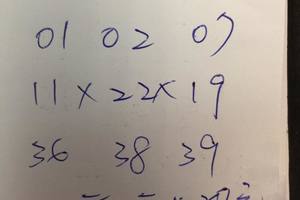 01 02 07
11 × 22 × 19
36 38 39